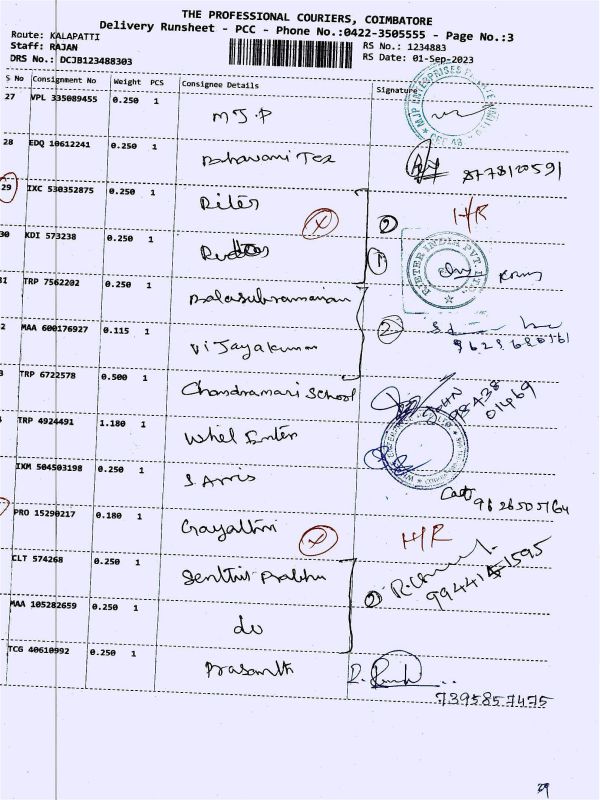 THE PROFESSIONAL COURIERS, COIMBATORE
Delivery Runsheet - PCC - Phone No.:0422-3505555 - Page No.:3
Route: KALAPATTI
Staff: RAJAN
DRS No.: DCJB123488303
RS No.: 1234883
RS Date: 01-Sep-2023
S No Consignment No Weight PCS Consignee Details Signature
27 VPL 335089455 0.250 1 M J P
28 EDQ 10612241 0.250 1 Bhavani Tex 8778120591
29 IXC 530352875 0.250 1 Riter H/R
30 KDI 573238 0.250 1
31 TRP 7562202 0.250 1 Balasubramanian
2 MAA 600176927 0.115 1 Vijayakumar 2
3 TRP 6722578 0.500 1 Chandramari School
TRP 4924491 1.180 1 Whel Enter
IXM 504503198 0.250 1 S Arris
PRO 15290217 0.180 1 Gayathri H/R
CLT 574268 0.250 1 Senthil Prabhu 2
MAA 105282659 0.250 1 do
TCG 40610992 0.250 1 Prasanth
7395857475
RIETER INDIA PVT. LTD.